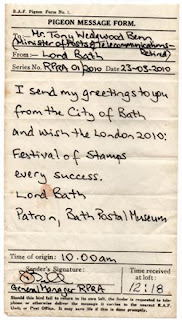 R.A.F. Pigeon Form No. 1.
PIGEON MESSAGE FORM.
To:- Mr. Tony Wedgwood Benn
(Minister of Posts & Telecommunications - Retired)
From:- Lord Bath
Series No. RPRA 01/2010 Date 23-03-2010
I send my greetings to you
from the City of Bath
and wish the London 2010:
Festival of Stamps
every success.
Lord Bath
Patron, Bath Postal Museum
Time of origin: 10.00am
Sender's Signature:
General Manager RPRA
Time received
at loft:
12:18
Should this bird fail to return to its own loft, the finder is requested to telephone
or otherwise deliver the message it carries to the nearest R.A.F.
Unit, or Post Office. It may save life if this is done promptly.